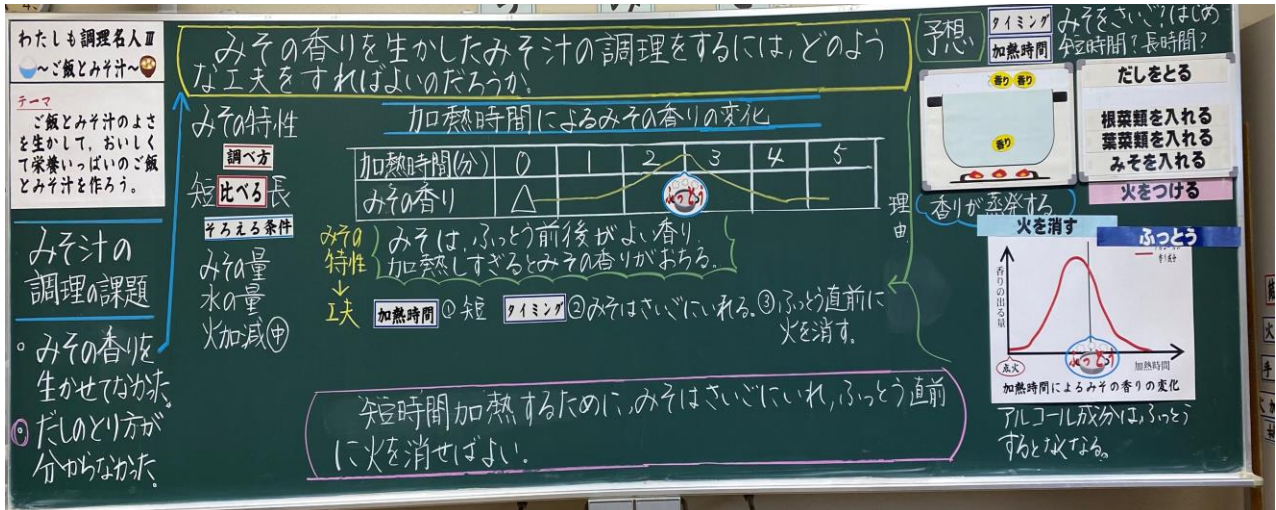 わたしも調理名人Ⅲ
～ご飯とみそ汁～
テーマ
ご飯とみそ汁のよさ
を生かして、おいしく
て栄養いっぱいのご飯
とみそ汁を作ろう。
みそ汁の
調理の課題
みその香りを
生かせてなかった。
だしのとり方が
分からなかった。
みその香りを生かしたみそ汁の調理をするには,どのよう
な工夫をすればよいのだろうか。
みその特性
調べ方
短 比べる 長
そろえる条件
みその量
水の量
火加減 中
加熱時間によるみその香りの変化
加熱時間(分) 0 1 2 3 4 5
みその香り △ ふっとう
みその
特性
みそは,ふっとう前後がよい香り
加熱しすぎるとみその香りがおちる。
工夫
加熱時間 ①短 タイミング ②みそはさいごにいれる。③ふっとう直前に
火を消す。
理由
短時間加熱するために,みそはさいごにいれ,ふっとう直前
に火を消せばよい.
予想
タイミング みそをさいご?はじめ
加熱時間 短時間?長時間?
香り 香り
香り
だしをとる
根菜類を入れる
葉菜類を入れる
みそを入れる
火をつける
香りが蒸発する
火を消す
ふっとう
香りの出る量
点火
ふっとう
加熱時間
加熱時間によるみその香りの変化
アルコール成分は,ふっとう
するとなくなる。
火
手